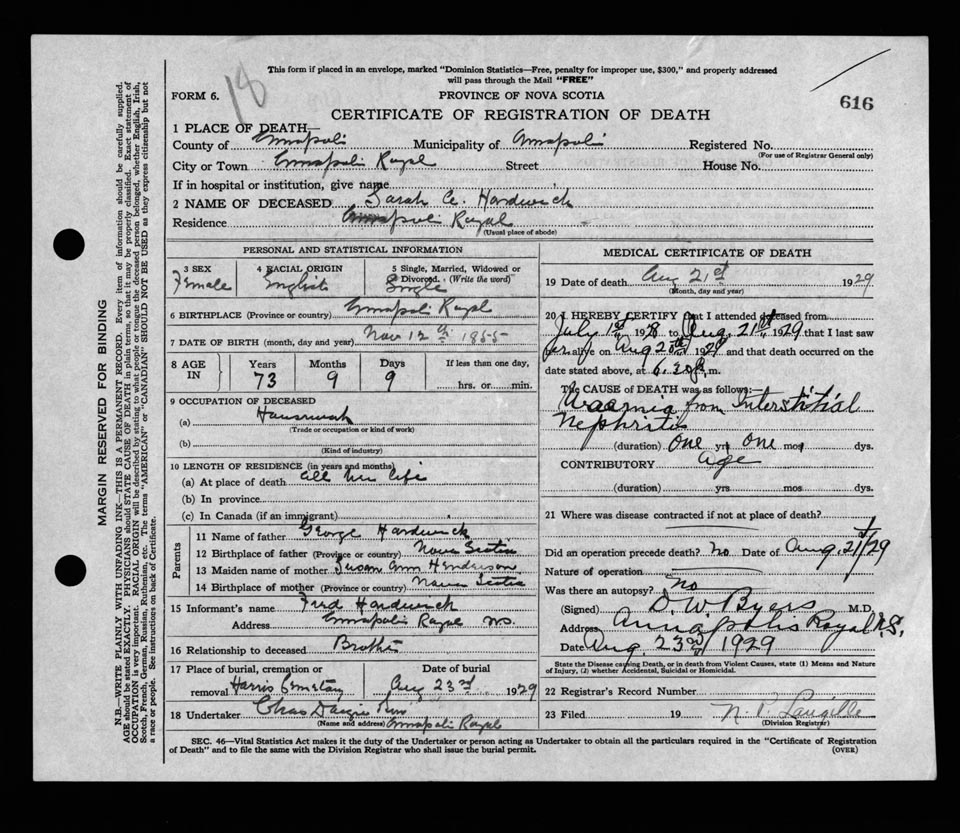 18
This form if placed in an envelope, marked "Dominion Statistics—Free, penalty for improper use, $300," and properly addressed
will pass through the Mail "FREE"
FORM 6.
PROVINCE OF NOVA SCOTIA
616
CERTIFICATE OF REGISTRATION OF DEATH
1 PLACE OF DEATH—
County of Annapolis Municipality of Annapolis Registered No.
(For use of Registrar General only)
City or Town Annapolis Royal Street House No.
If in hospital or institution, give name
2 NAME OF DECEASED Sarah A. Hardwick
Residence Annapolis Royal
(Usual place of abode)
PERSONAL AND STATISTICAL INFORMATION
3 SEX 4 RACIAL ORIGIN 5 Single, Married, Widowed or Divorced. (Write the word)
Female English Single
6 BIRTHPLACE (Province or country) Annapolis Royal
7 DATE OF BIRTH (month, day and year) Nov 12th 1855
8 AGE IN Years Months Days If less than one day,
73 9 9 hrs. or min.
9 OCCUPATION OF DECEASED
(a) Housework
(Trade or occupation or kind of work)
(b)
(Kind of industry)
10 LENGTH OF RESIDENCE (in years and months)
(a) At place of death all her life
(b) In province
(c) In Canada (if an immigrant)
Parents
11 Name of father George Hardwick
12 Birthplace of father (Province or country) Nova Scotia
13 Maiden name of mother Susan Ann Henderson
14 Birthplace of mother (Province or country) Nova Scotia
15 Informant's name Fred Hardwick
Address Annapolis Royal NS.
16 Relationship to deceased Brother
17 Place of burial, cremation or removal Date of burial
Harris Cemetary Aug 23rd 1929
18 Undertaker Chas
(Name and address) Annapolis Royal
MEDICAL CERTIFICATE OF DEATH
19 Date of death Aug 21st 1929
(Month, day and year)
20 I HEREBY CERTIFY that I attended deceased from
July 1st 1928 to Aug. 21st 1929 that I last saw
her alive on Aug 20th 1929 and that death occurred on the
date stated above, at 6.30 P. m.
The CAUSE of DEATH was as follows:—
Uraemia from Interstitial
Nephritis
(duration) One yrs One mos dys.
CONTRIBUTORY age
(duration) yrs mos dys.
21 Where was disease contracted if not at place of death?
Did an operation precede death? No Date of Aug. 21st/29
Nature of operation
Was there an autopsy? No
(Signed) D. W. Byers M.D.
Address Annapolis Royal N.S.
Date Aug. 23rd 1929
State the Disease causing Death, or in death from Violent Causes, state (1) Means and Nature
of Injury, (2) whether Accidental, Suicidal or Homicidal.
22 Registrar's Record Number
23 Filed 19 N. P. Langille
(Division Registrar)
SEC. 46—Vital Statistics Act makes it the duty of the Undertaker or person acting as Undertaker to obtain all the particulars required in the "Certificate of Registration
of Death" and to file the same with the Division Registrar who shall issue the burial permit.
(OVER)
MARGIN RESERVED FOR BINDING
N.B.—WRITE PLAINLY WITH UNFADING INK—THIS IS A PERMANENT RECORD. Every item of information should be carefully supplied.
AGE should be stated EXACTLY. PHYSICIANS should STATE CAUSE OF DEATH in plain terms, so that it may be properly classified. Exact statement of
OCCUPATION is very important. RACIAL ORIGIN will be described by stating to what people or tongue the deceased person belonged, whether English, Irish,
Scotch, French, German, Russian, Ruthenian, etc. The terms "AMERICAN" or "CANADIAN" SHOULD NOT BE USED as they express citizenship but not
a race or people. See instructions on back of Certificate.